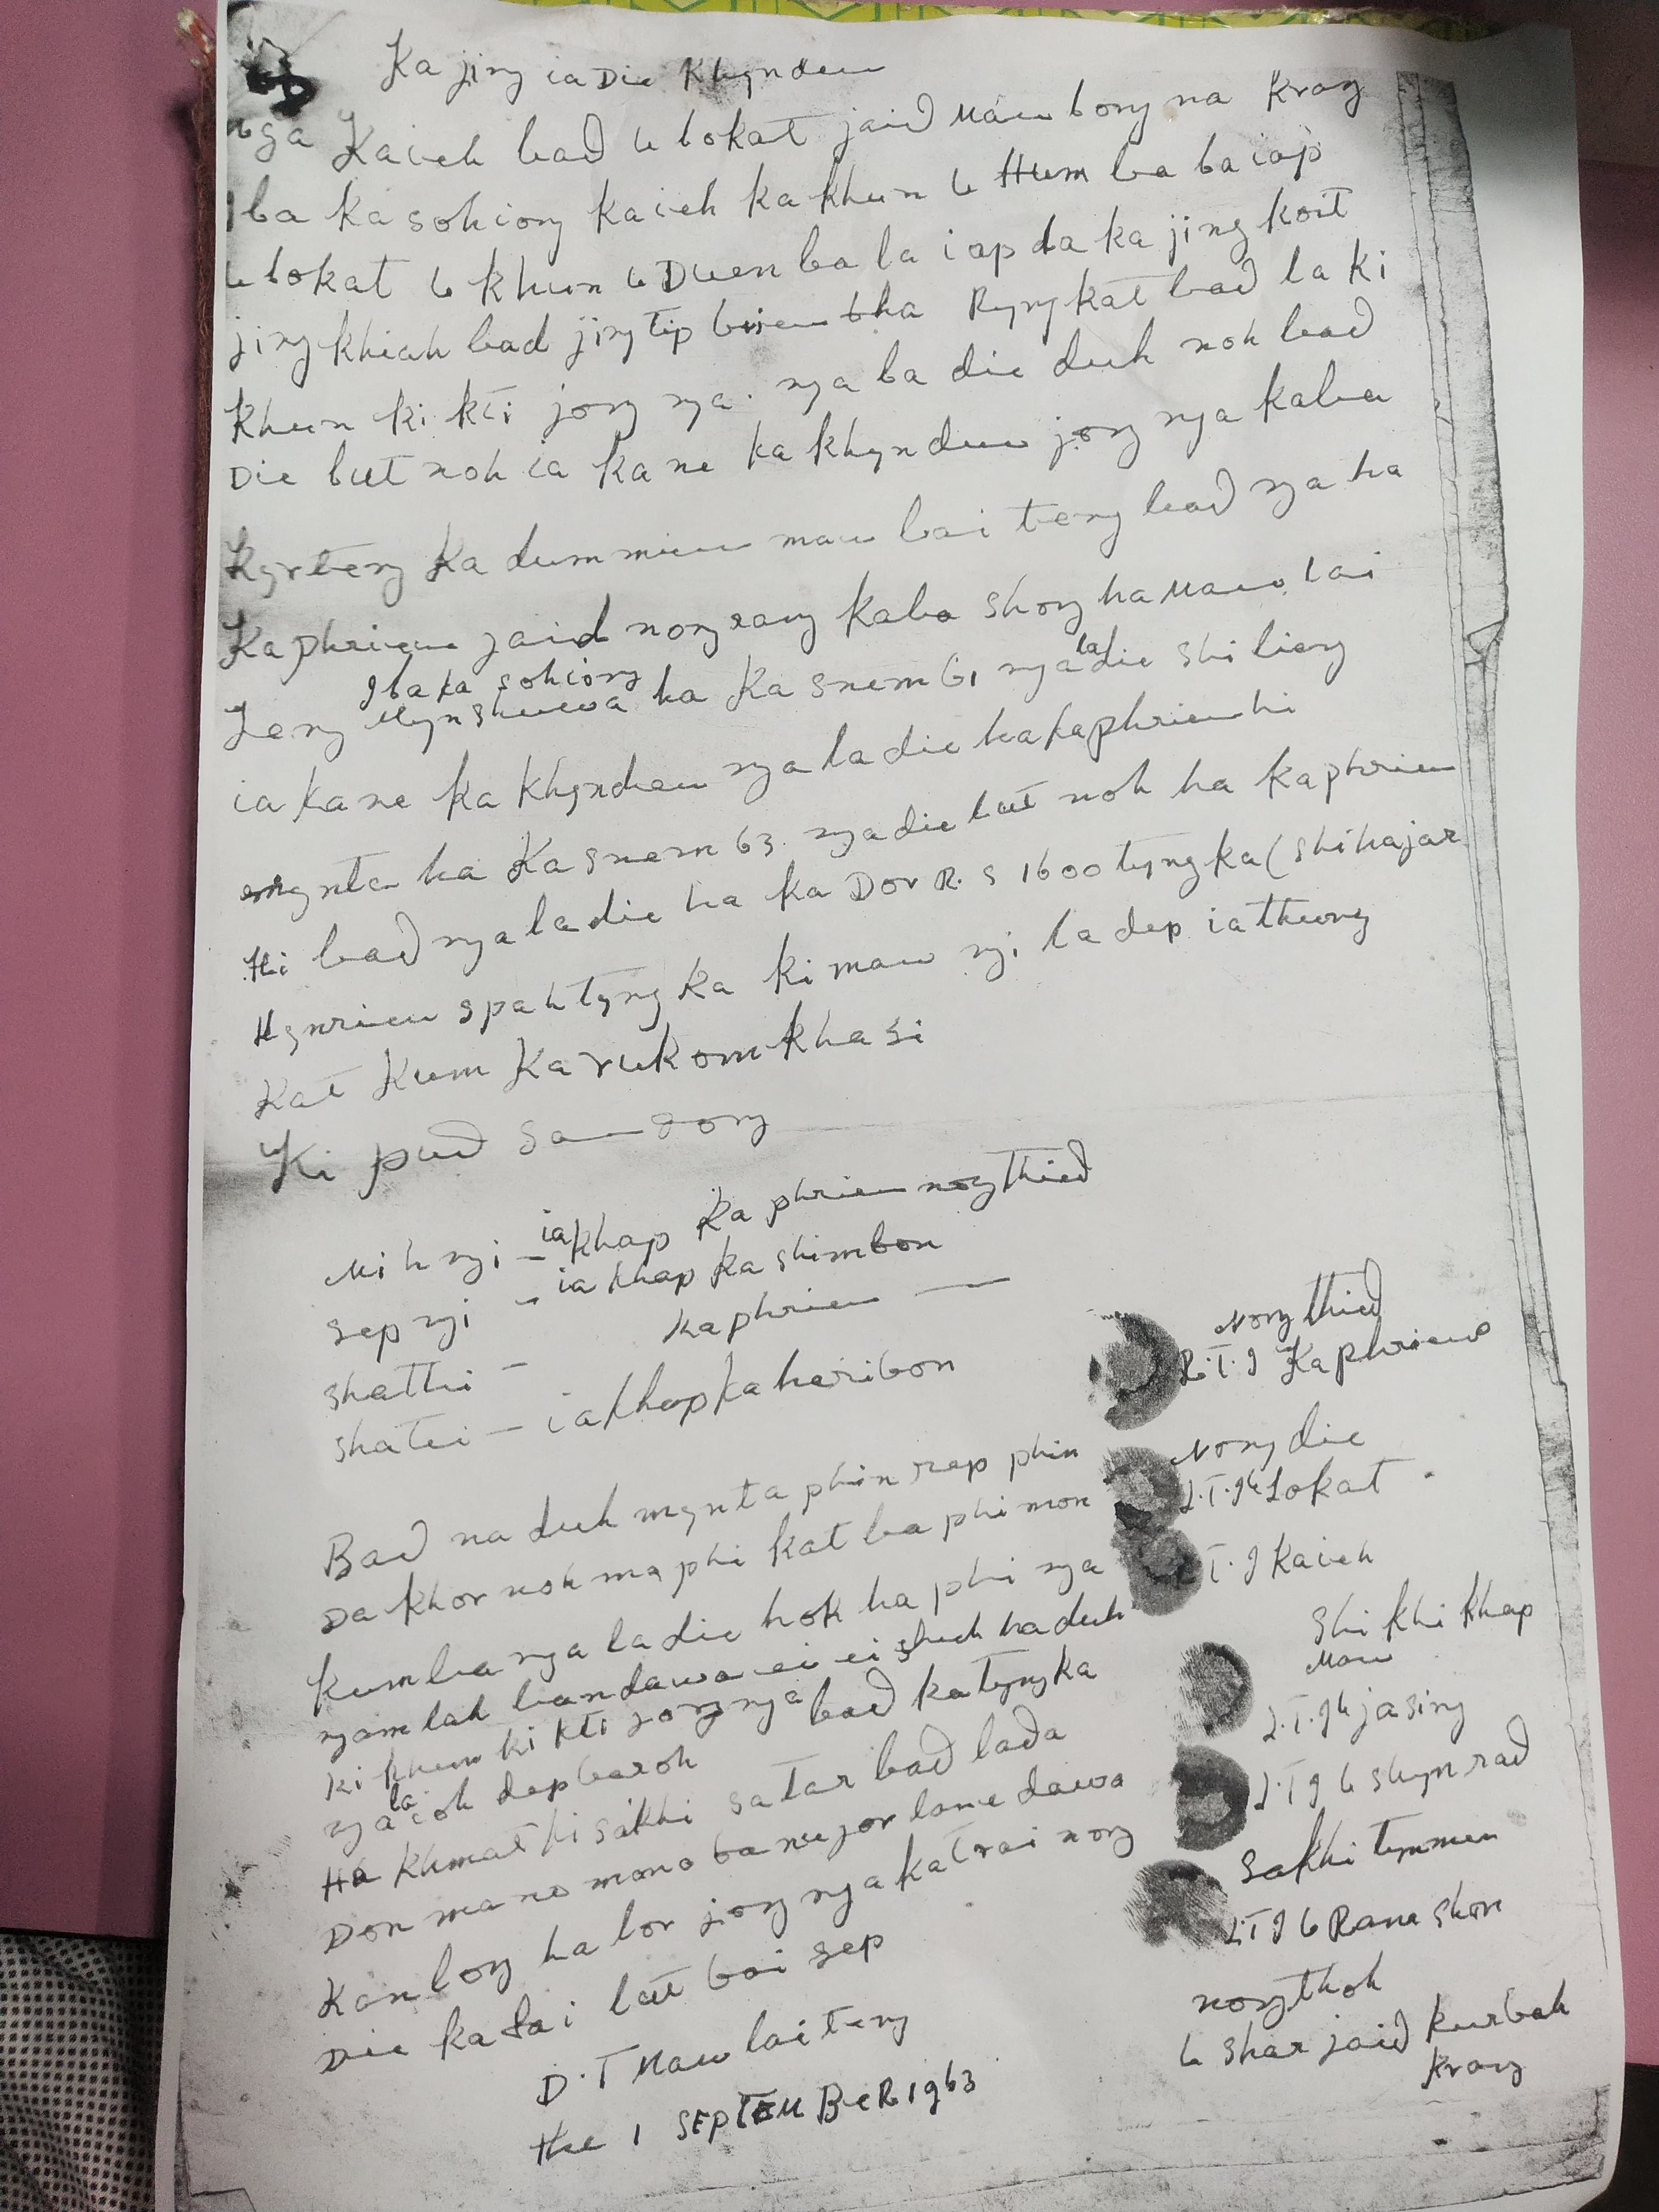 Ka jing ia Die Khyndew
nga Kaieh bad U Lokat jaid Mawlong na Krang
Iba Ka sohiong Kaieh ka khun U Hum ba la iap
U Lokat U khun U Duen ba la iap da ka jing koit
jing khiah bad jing tip briew bha Ryngkat bad la ki
khun ki kti jong nga. nga la die duh noh bad
Die lut noh ia kane ka khyndew jong nga kaba
Kyrteng Ka dum miew maw lai teng bad nga ha
Ka phriew jaid nongrang kaba shong ha Maw lai
Teng Mynshuwa ha Ka snem 61 nga la die shi liang
Iba ka sohiong
ia kane ka khyndew nga la die ha ka phriew hi
mynta ha Ka snem 63. nga die lut noh ha ka phriew
Hi bad nga la die ha ka Dor R. S 1600 tyngka ( shi hajar
Hynriew spah tyngka ki maw ngi la dep ia thung
Kat Kum Ka rukom khasi
Ki pud sawdong
Mih ngi - ia khap Ka phriew nongthied
sep ngi - ia khap ka shimbon
shathi - ka phriew
shatei - ia khap ka heribon
Bad na duh mynta phin rep phin
Da khor noh ma phi kat ba phi mon
kumba nga la die hok ha phi nga
ngam lah ban dawa ei ei shuh haduh
ki khun ki kti jong nga bad ka tyngka
nga la ioh dep baroh
Ha khmat ki sakhi satar bad lada
Don ma no mono ba nujor lane dawa
Kan long ha lor jong nga ka trai nong
Die ka dei lut bai sep
D.T Mawlaiteng
the 1 SEPTEMBeR 1963
Nong thied
L.T.I Ka phriew
Nong die
L.T.I U Lokat
L.T.I Kaieh
Shi khi khap
Maw
L.T.I U jasing
L.T.I U shynrad
Sakhi tymmen
L.T.I U Rane shon
nongthoh
U Shar jaid kurbah
Krang